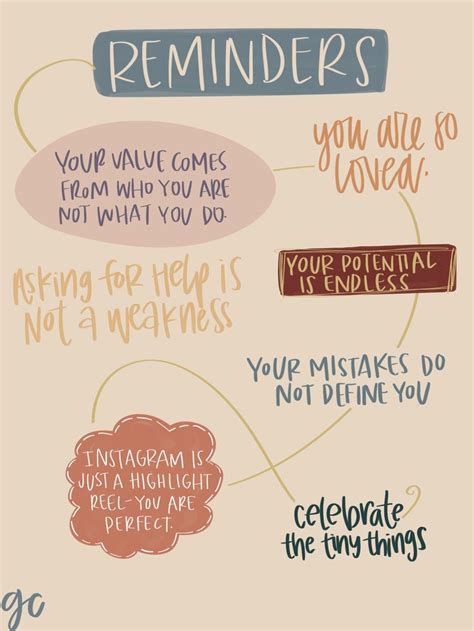 REMINDERS
YOUR VALUE COMES
FROM WHO YOU ARE
NOT WHAT YOU DO.
you are so
loved.
YOUR POTENTIAL
IS ENDLESS
Asking for Help is
Not a weakness
YOUR MISTAKES DO
NOT DEFINE YOU
INSTAGRAM IS
JUST A HIGHLIGHT
REEL-YOU ARE
PERFECT.
celebrate
the tiny things
gc